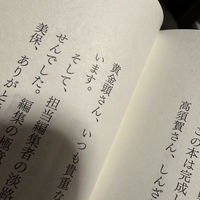 この本は完成し
高須賀さん、しんざ
黄金頭さん、いつも貴重な
います。
そして、担当編集者の淡路
せんでした。編集の極意
美保、ありがと